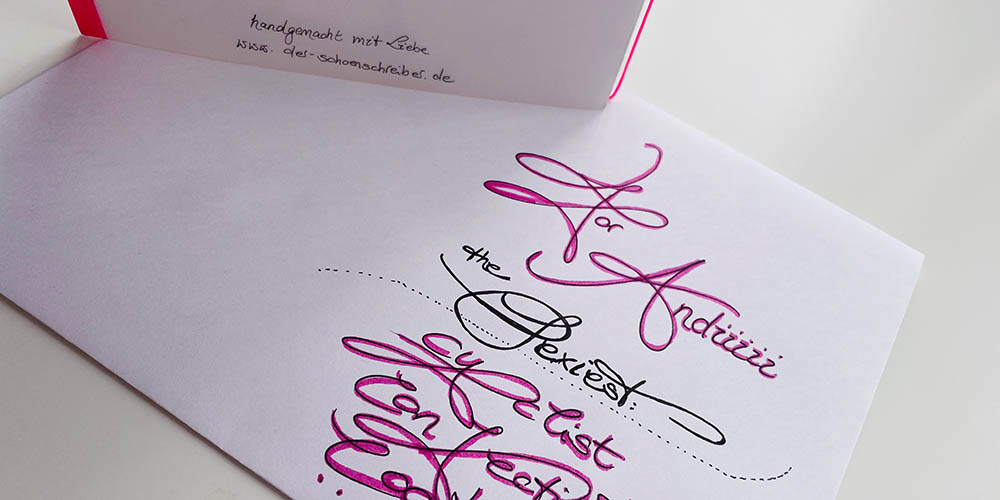 handgemacht mit Liebe
www. der-schoenschreiber.de
For
Andiiiii
the
Sexiest:
cyclist